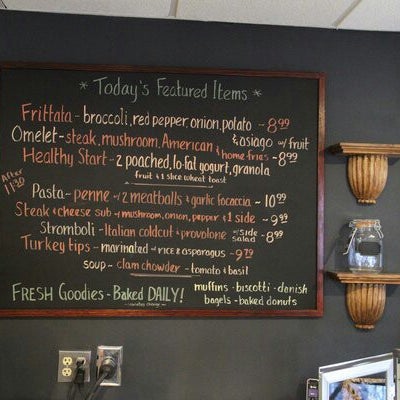 * Today's Featured Items *
Frittata - broccoli, red pepper, onion, potato - 8.99
Omelet - steak, mushroom, American & asiago w/ fruit & home fries - 8.99
Healthy Start - 2 poached, lo-fat yogurt, granola
fruit & 1 slice wheat toast
After 11:30
Pasta - penne w/ 2 meatballs & garlic focaccia - 10.99
Steak & cheese sub w/ mushroom, onion, pepper & 1 side - 9.99
Stromboli - Italian coldcut & provolone w/ side salad - 8.99
Turkey tips - marinated w/ rice & asparagus - 9.79
soup - clam chowder - tomato & basil
FRESH Goodies - Baked DAILY!
muffins · biscotti · danish
bagels - baked donuts